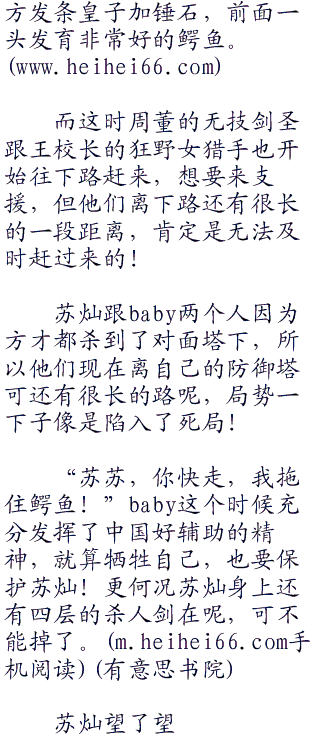 方发条皇子加锤石，前面一
头发育非常好的鳄鱼。
(www.heihei66.com)
而这时周董的无技剑圣
跟王校长的狂野女猎手也开
始往下路赶来，想要来支
援，但他们离下路还有很长
的一段距离，肯定是无法及
时赶过来的！
苏灿跟baby两个人因为
方才都杀到了对面塔下，所
以他们现在离自己的防御塔
可还有很长的路呢，局势一
下子像是陷入了死局！
“苏苏，你快走，我拖
住鳄鱼！”baby这个时候充
分发挥了中国好辅助的精
神，就算牺牲自己，也要保
护苏灿！更何况苏灿身上还
有四层的杀人剑在呢，可不
能掉了。(m.heihei66.com手
机阅读)(有意思书院)
苏灿望了望